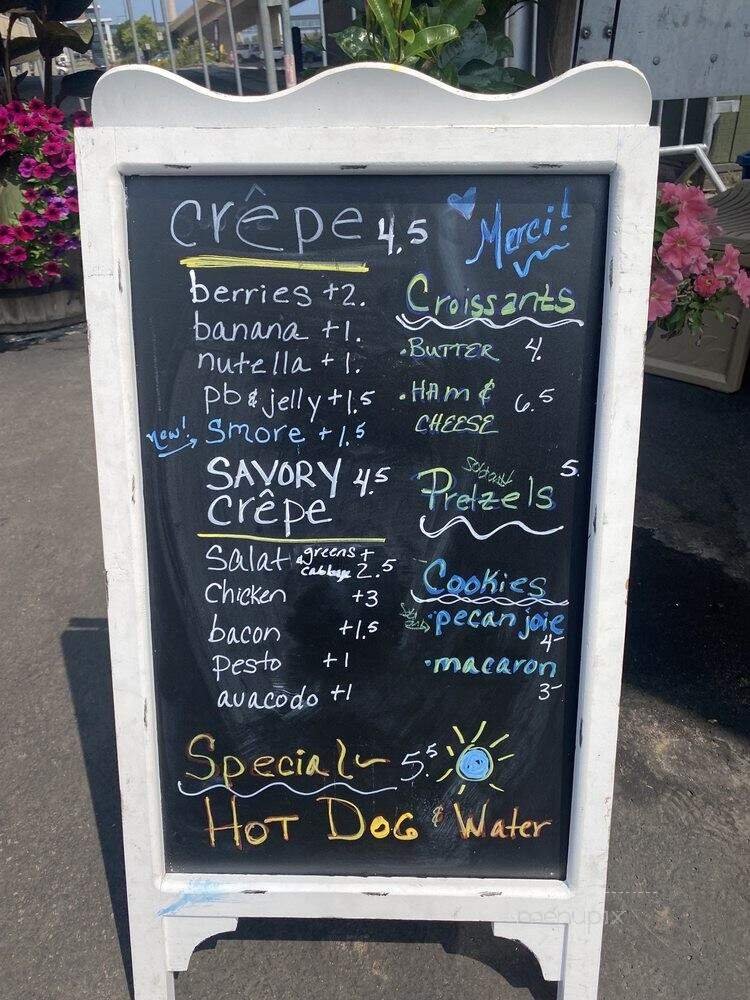 crêpe 4.5
berries +2.
banana +1.
nutella +1.
pb & jelly +1.5
new! Smore +1.5
SAVORY 4.5
crêpe
Salat greens +
cabbage 2.5
Chicken +3
bacon +1.5
pesto +1
avacodo +1
Merci!
Croissants
• BUTTER 4.
• HAM &
CHEESE 6.5
5.
Pretzels
Cookies
• pecan joie
4-
• macaron
3-
Special 5.5
HOT DOG & Water
menupix